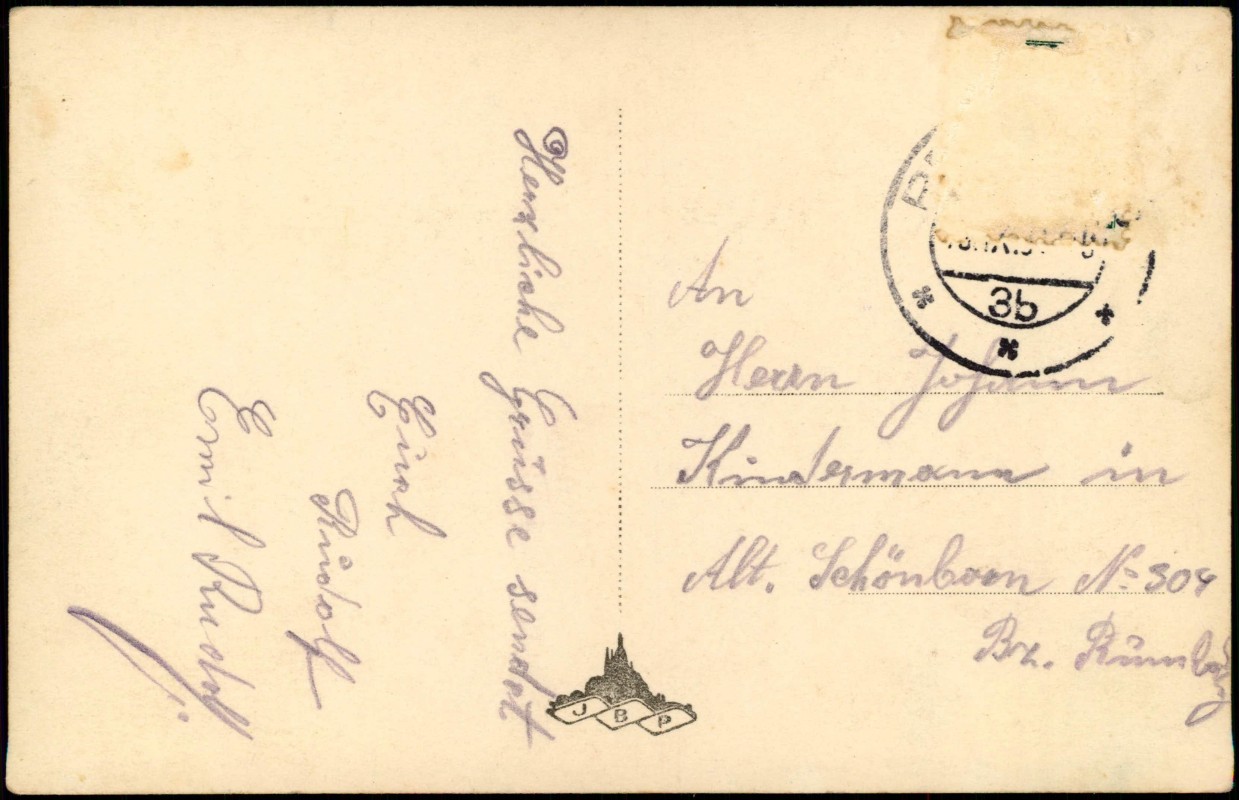 Herzliche Grüsse sendet
Euch
Rudolf
Emil Rudolf
An
Herrn Johann
Kindermann in
Alt. Schönborn No 304
Bz. Rümburg
3b
J B P